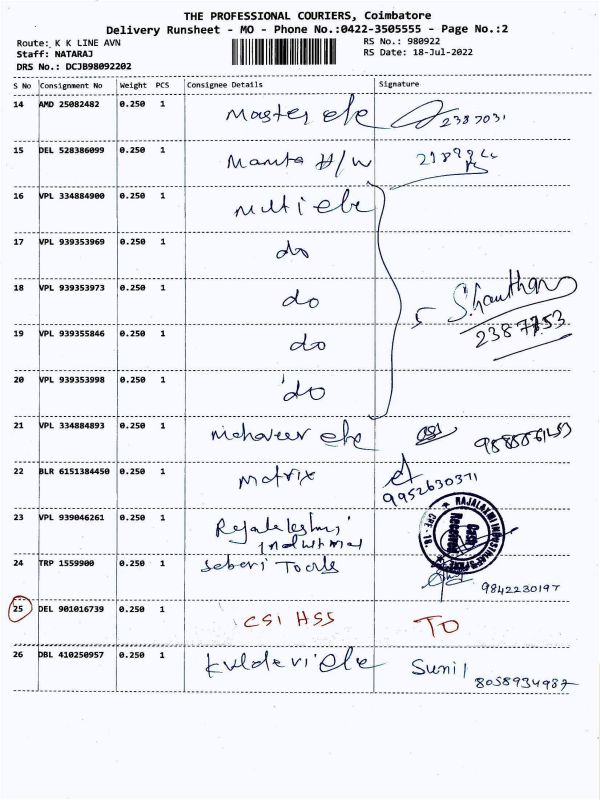 THE PROFESSIONAL COURIERS, Coimbatore
Delivery Runsheet - MO - Phone No.:0422-3505555 - Page No.:2
Route: K K LINE AVN
Staff: NATARAJ
DRS No.: DCJB98092202
RS No.: 980922
RS Date: 18-Jul-2022
S No Consignment No Weight PCS Consignee Details Signature
14 AMD 25082482 0.250 1 Master ele 2387031
15 DEL 528386099 0.250 1 Mamta H/W
16 VPL 334884900 0.250 1 Multi ele
17 VPL 939353969 0.250 1 do
18 VPL 939353973 0.250 1 do
5 S.Hauthan
2387753
19 VPL 939355846 0.250 1 do
20 VPL 939353998 0.250 1 do
21 VPL 334884893 0.250 1 Mahaveer ele
22 BLR 6151384450 0.250 1 Matrix
9952630371
23 VPL 939046261 0.250 1 Rajalakshmi
Industrial
RAJALAXMI INDUSTRIAL
Cash
Received
CBE - 18.
24 TRP 1559900 0.250 1 Saberi Tools
9842230197
25 DEL 901016739 0.250 1 CSI HSS TO
26 DBL 410250957 0.250 1 Kuldevi ele Sunil
8058934987